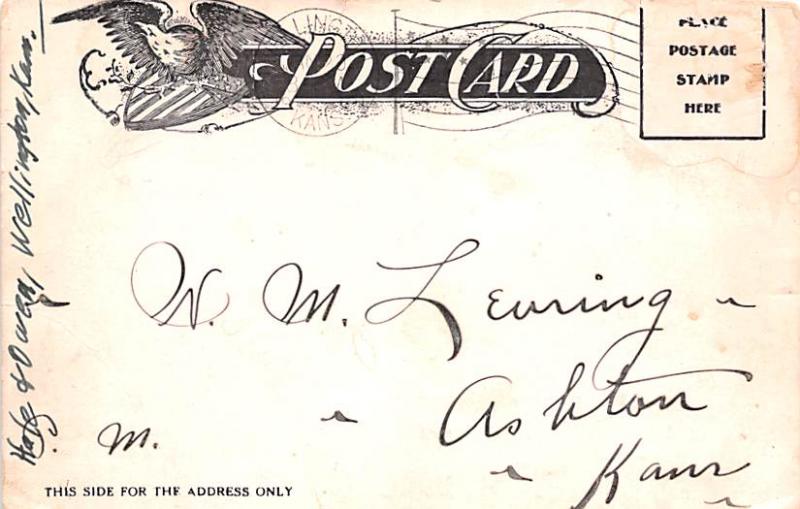 POST CARD
LING
KANS
PLACE
POSTAGE
STAMP
HERE
Wellington, Kan.
W. M.
Ashton
Kans
M.
THIS SIDE FOR THE ADDRESS ONLY